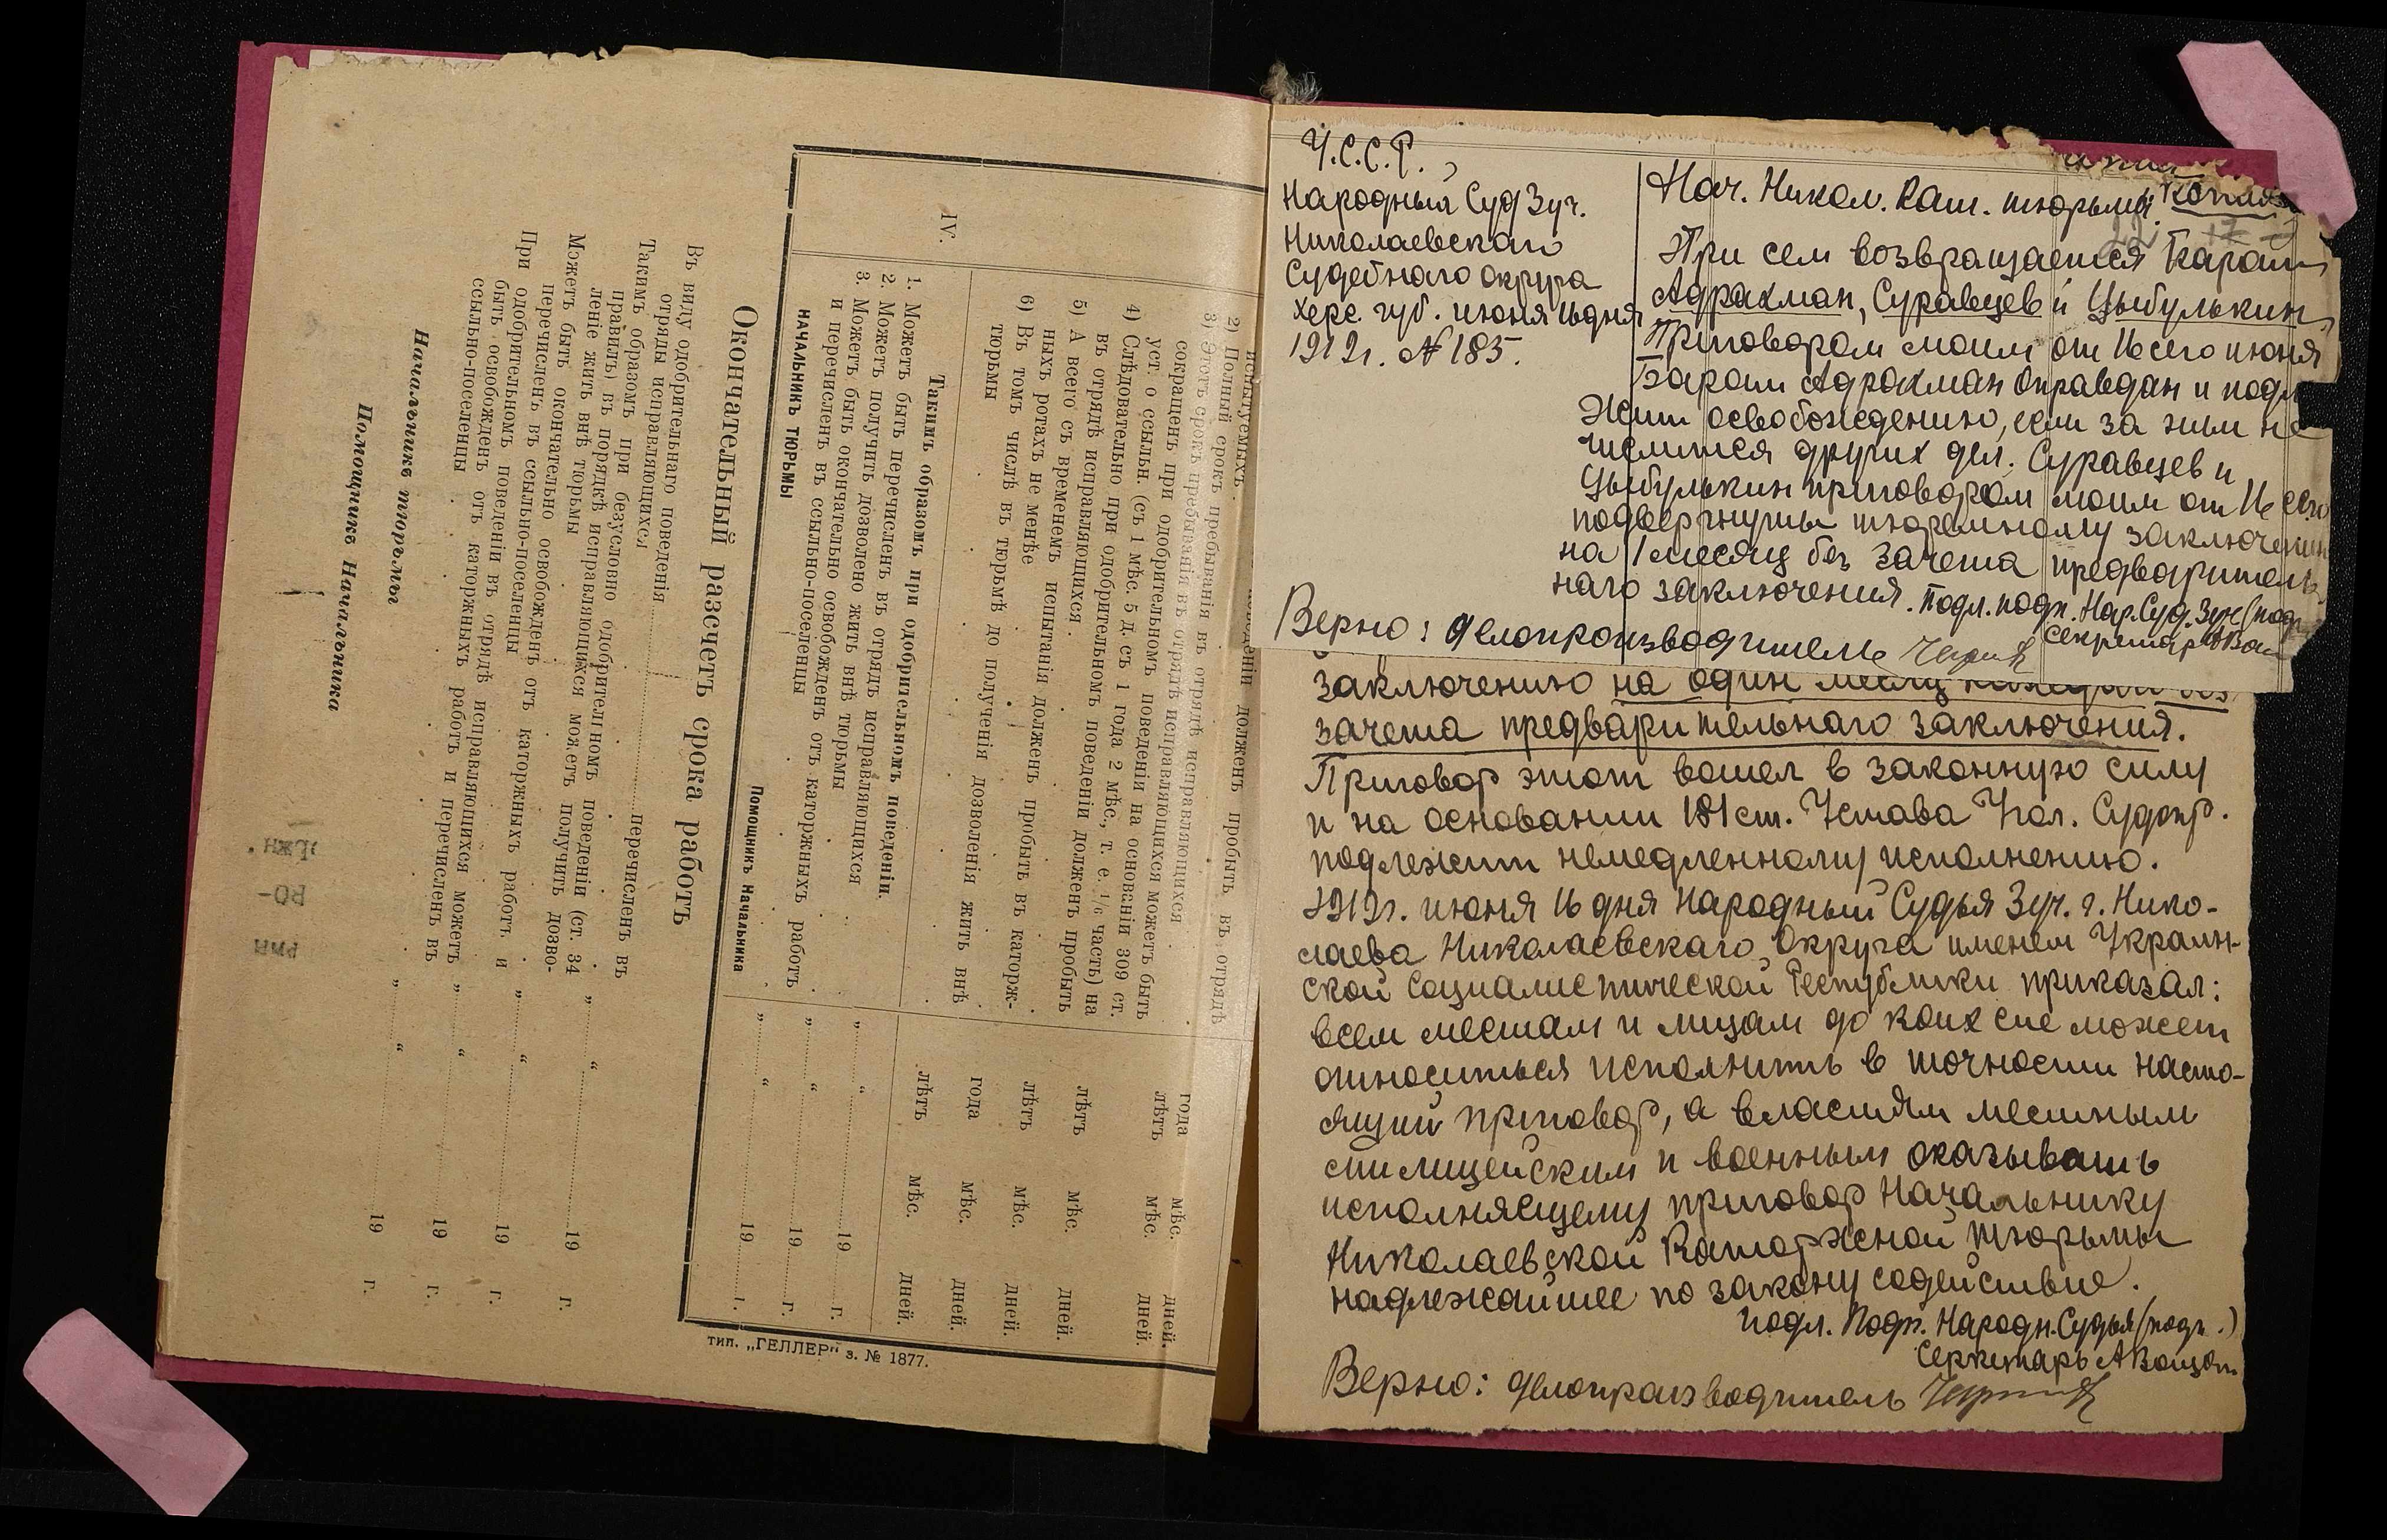 2) Полный срокъ пребыванія въ отрядѣ исправляющихся долженъ пробыть въ отрядѣ
испытуемыхъ
3) Этотъ срокъ пребыванія въ отрядѣ исправляющихся
сокращенъ при одобрительномъ поведеніи на основаніи 309 ст.
уст. о ссыльн. (съ 1 мѣс. 5 д. съ 1 года 2 мѣс., т. е. 1/6 часть) на
4) Слѣдовательно при одобрительномъ поведеніи долженъ пробыть
въ отрядѣ исправляющихся
5) А всего съ временемъ испытанія долженъ пробыть въ каторж-
ныхъ ротахъ не менѣе
6) Въ томъ числѣ въ тюрьмѣ до полученія дозволенія жить внѣ
тюрьмы
года мѣс. дней.
лѣтъ мѣс. дней.
лѣтъ мѣс. дней.
лѣтъ мѣс. дней.
года мѣс. дней.
лѣтъ мѣс. дней.
IV.
Такимъ образомъ при одобрительномъ поведеніи.
1. Можетъ быть перечисленъ въ отрядъ исправляющихся „ “ 19 г.
2. Можетъ получить дозволено жить внѣ тюрьмы
3. Можетъ быть окончательно освобожденъ отъ каторжныхъ работъ „ “ 19 г.
и перечисленъ въ ссыльно-поселенцы „ “ 19 г.
НАЧАЛЬНИКЪ ТЮРЬМЫ Помощникъ Начальника
Окончательный разсчетъ срока работъ
Въ виду одобрительнаго поведенія перечисленъ въ
отряды исправляющихся
Такимъ образомъ при безусловно одобрительномъ поведеніи (ст. 34
правилъ) въ порядкѣ исправляющихся можетъ получить дозво-
леніе жить внѣ тюрьмы „ “ 19 г.
Можетъ быть окончательно освобожденъ отъ каторжныхъ работъ и
перечисленъ въ ссыльно-поселенцы „ “ 19 г.
При одобрительномъ поведеніи въ отрядѣ исправляющихся можетъ
быть освобожденъ отъ каторжныхъ работъ и перечисленъ въ
ссыльно-поселенцы „ “ 19 г.
Начальникъ тюрьмы „ “ 19 г.
Помощникъ Начальника
тип. „ГЕЛЛЕРЪ“ з. № 1877.
У.С.С.Р.,
Народный Суд 3 уч.
Николаевскаго
Судебнаго округа
Херс. губ. июня 16 дня
1919г. № 185.
Нач. Никол. Кат. тюрьмы. Копия
22 17
При сем возвращается Барам
Адрахман, Суравцев и Цыбулькин,
Приговором моим от 16 сего июня
Барам Адрахман оправдан и подле
жит освобождению, если за ним не
числится других дел. Суравцев и
Цыбулькин приговором моим от 16 сего
подвергнуты тюремному заключению
на 1 месяц без зачета предваритель-
наго заключения. Подл. подп. Нар. Суд. 3 уч (подп
Секретарь
Верно: делопроизводитель
заключению на один месяц каждаго без
зачета предварительнаго заключения.
Приговор этот вошел в законную силу
и на основании 181 ст. Устава Угол. Судопр.
подлежит немедленному исполнению.
1919г. июня 16 дня Народный Судья 3 уч. г. Нико-
лаева Николаевскаго Округа именем Украин-
ской Социалистической Республики приказал:
всем местам и лицам до коих сие может
относиться исполнить в точности насто-
ящий приговор, а властям местным
милицейским и военным оказывать
исполняющему приговор Начальнику
Николаевской Каторжной Тюрьмы
надлежайшее по закону содействие.
Подл. Подп. Народн. Судья (подп.)
Секретарь
Верно: делопроизводитель